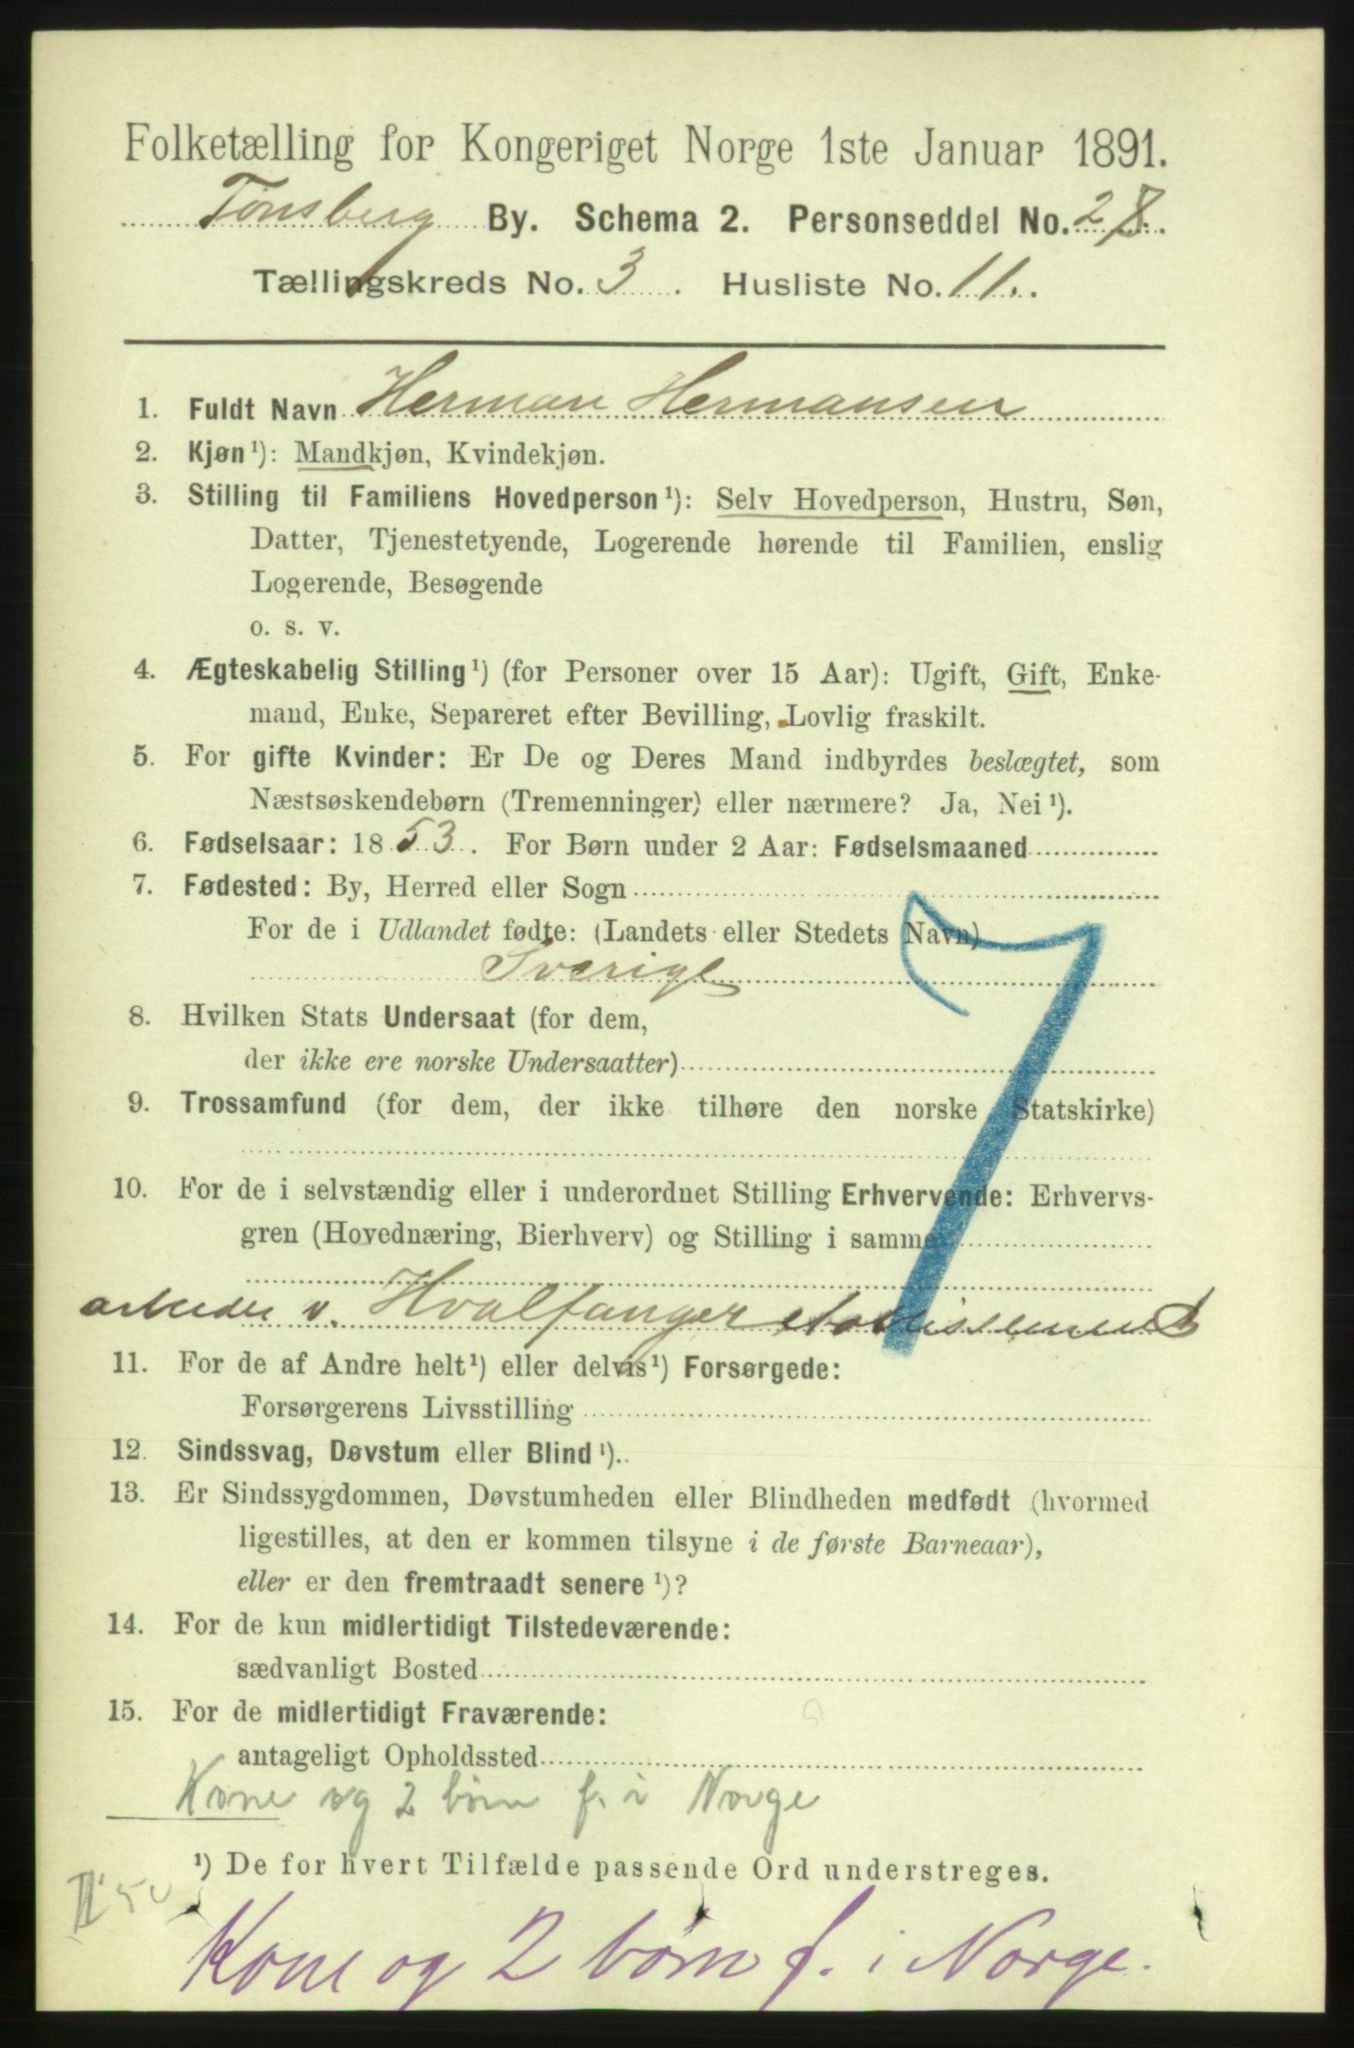 Folketælling for Kongeriget Norge 1ste Januar 1891.
Tønsberg By. Schema 2. Personseddel No. 28.
Tællingskreds No. 3. Husliste No. 11.
1. Fuldt Navn Herman Hermansen
2. Kjøn ¹): Mandkjøn, Kvindekjøn.
3. Stilling til Familiens Hovedperson ¹): Selv Hovedperson, Hustru, Søn,
Datter, Tjenestetyende, Logerende hørende til Familien, enslig
Logerende, Besøgende
o. s. v.
4. Ægteskabelig Stilling ¹) (for Personer over 15 Aar): Ugift, Gift, Enke-
mand, Enke, Separeret efter Bevilling, Lovlig fraskilt.
5. For gifte Kvinder: Er De og Deres Mand indbyrdes beslægtet, som
Næstsøskendebørn (Tremenninger) eller nærmere? Ja, Nei ¹).
6. Fødselsaar: 1853. For Børn under 2 Aar: Fødselsmaaned
7. Fødested: By, Herred eller Sogn
For de i Udlandet fødte: (Landets eller Stedets Navn)
Sverige
7
8. Hvilken Stats Undersaat (for dem,
der ikke ere norske Undersaatter)
9. Trossamfund (for dem, der ikke tilhøre den norske Statskirke)
10. For de i selvstændig eller i underordnet Stilling Erhvervende: Erhvervs-
gren (Hovednæring, Bierhverv) og Stilling i samme
arbeider v. Hvalfanger etablissement
11. For de af Andre helt ¹) eller delvis ¹) Forsørgede:
Forsørgerens Livsstilling
12. Sindssvag, Døvstum eller Blind ¹).
13. Er Sindssygdommen, Døvstumheden eller Blindheden medfødt (hvormed
ligestilles, at den er kommen tilsyne i de første Barneaar),
eller er den fremtraadt senere ¹)?
14. For de kun midlertidigt Tilstedeværende:
sædvanligt Bosted
15. For de midlertidigt Fraværende:
antageligt Opholdssted
Kone og 2 børn f. i Norge
¹) De for hvert Tilfælde passende Ord understreges.
II 50
Kone og 2 børn f. i Norge.